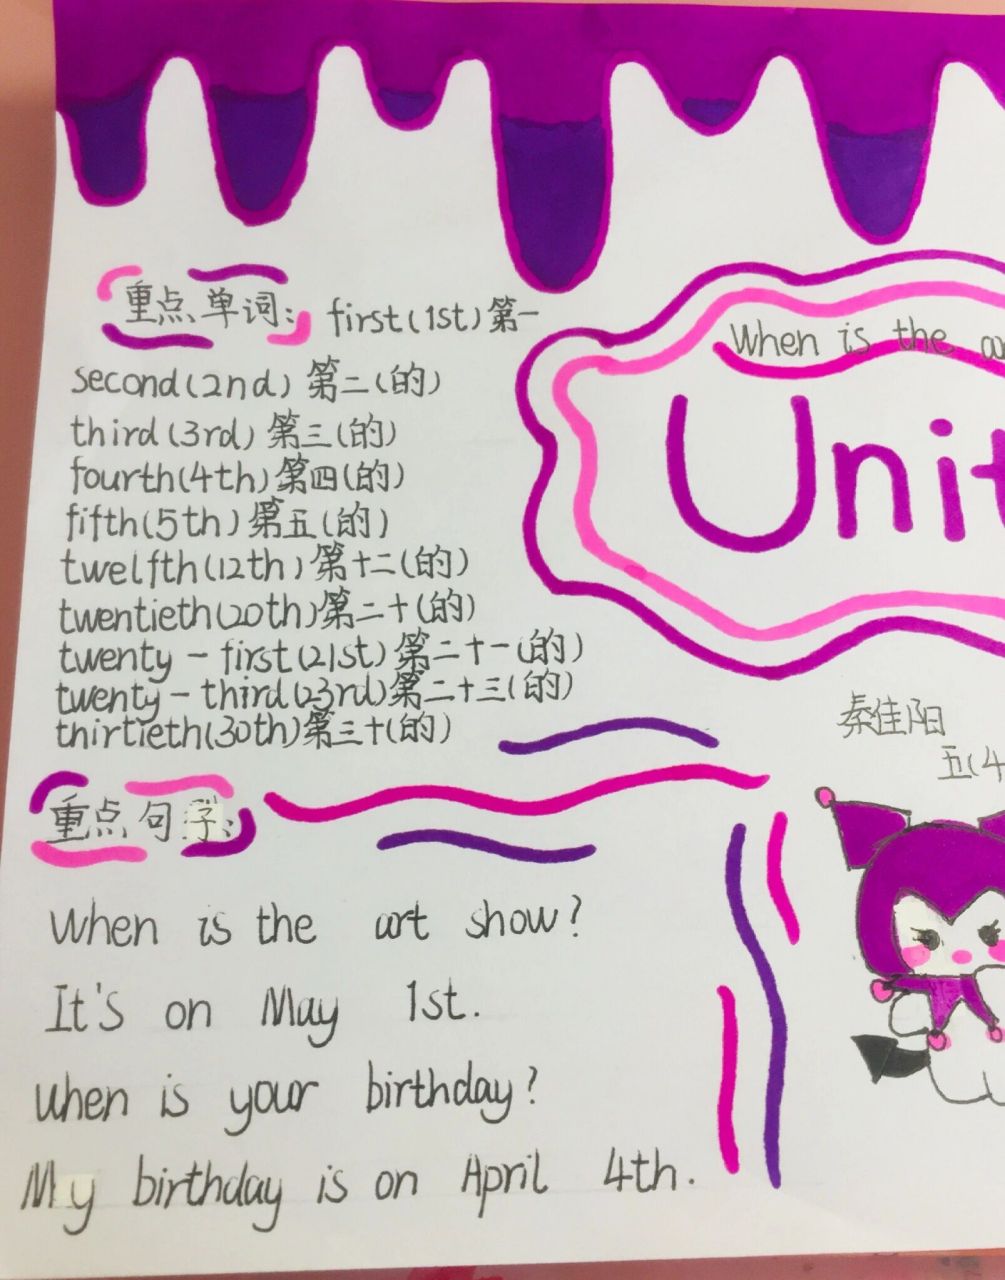 重点单词: first(1st)第一
second(2nd) 第二(的)
third(3rd) 第三(的)
fourth(4th)第四(的)
fifth(5th) 第五(的)
twelfth(12th)第十二(的)
twentieth(20th)第二十(的)
twenty-first(21st)第二十一(的)
twenty-third(23rd)第二十三(的)
thirtieth(30th)第三十(的)
When is the
Unit
秦佳阳
五(4
重点句子:
When is the art show?
It's on May 1st.
When is your birthday?
My birthday is on April 4th.